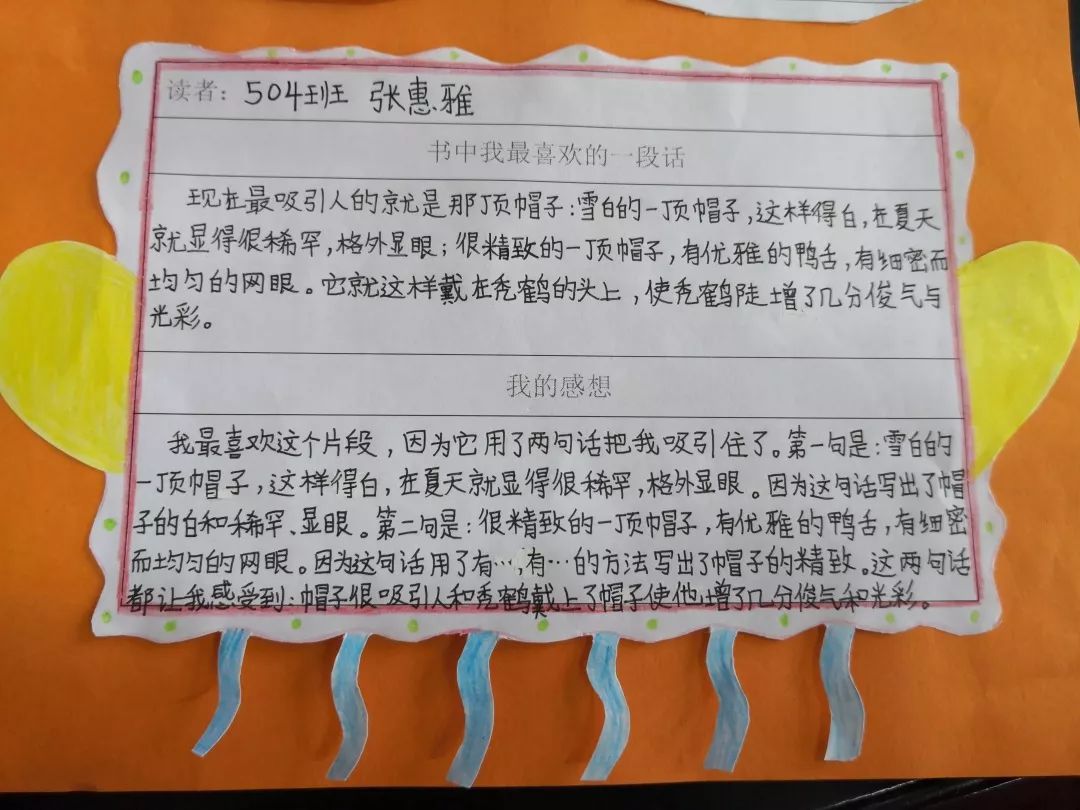 读者：504班 张惠雅
书中我最喜欢的一段话
现在最吸引人的就是那顶帽子：雪白的一顶帽子，这样得白，在夏天
就显得很稀罕，格外显眼；很精致的一顶帽子，有优雅的鸭舌，有细密而
均匀的网眼。它就这样戴在秃鹤的头上，使秃鹤陡增了几分俊气与
光彩。
我的感想
我最喜欢这个片段，因为它用了两句话把我吸引住了。第一句是：雪白的
一顶帽子，这样得白，在夏天就显得很稀罕，格外显眼。因为这句话写出了帽
子的白和稀罕、显眼。第二句是：很精致的一顶帽子，有优雅的鸭舌，有细密
而均匀的网眼。因为这句话用了有…，有…的方法写出了帽子的精致。这两句话
都让我感受到：帽子很吸引人和秃鹤戴上了帽子使他增了几分俊气和光彩。